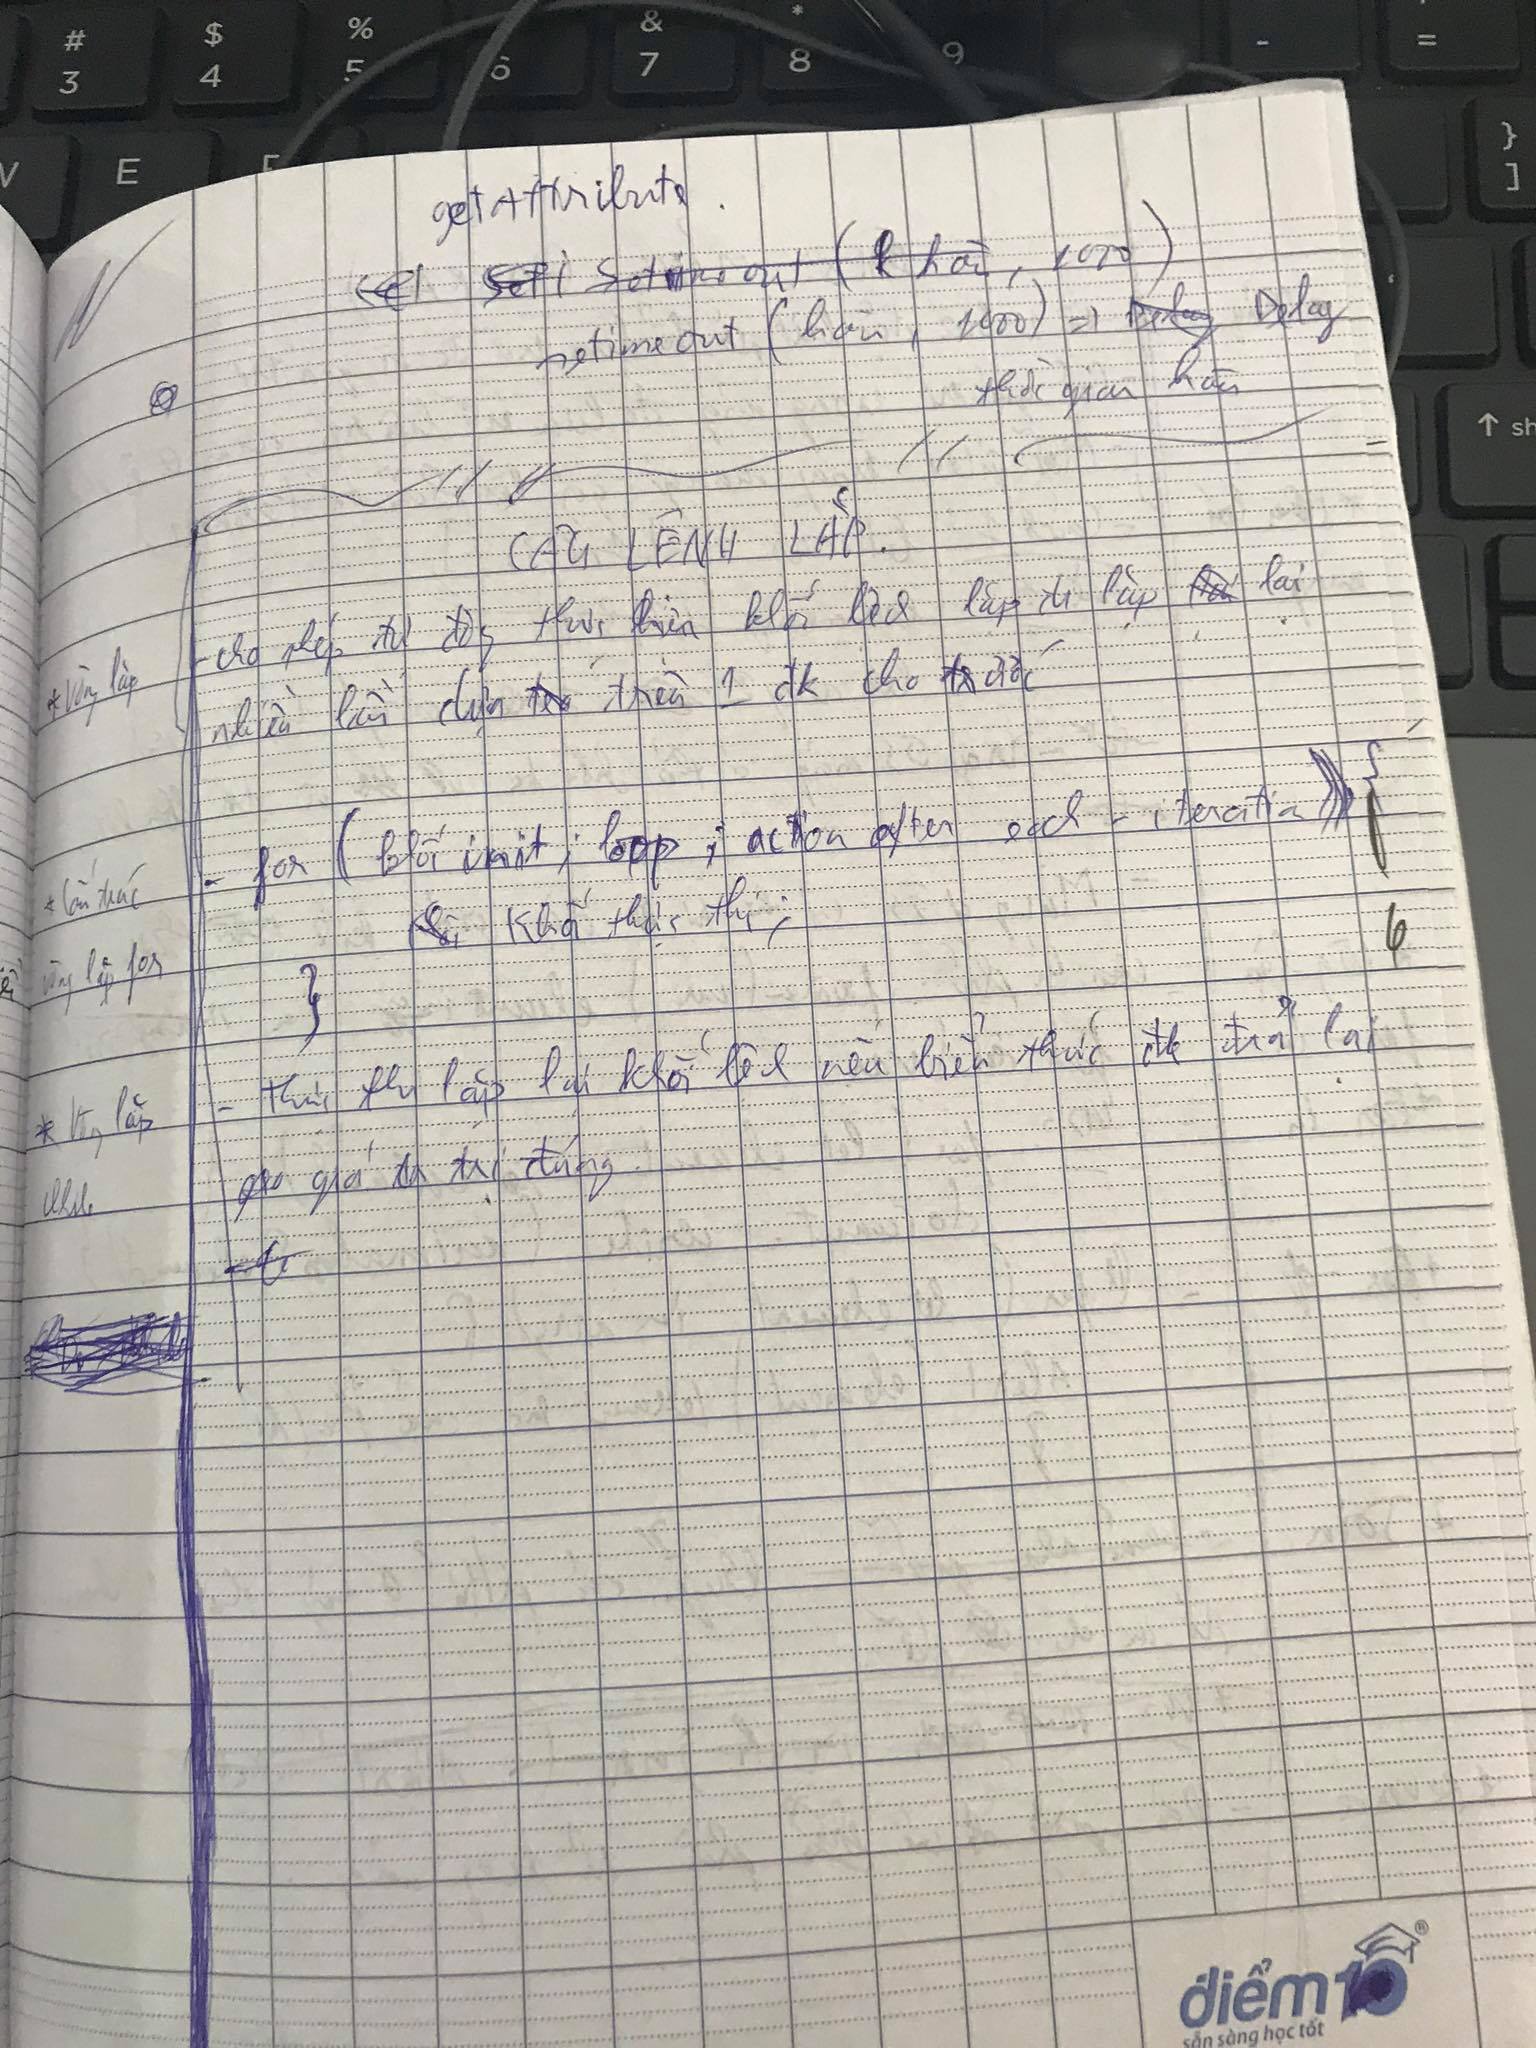 getAttribute.
Setimeout (hàm, 1000)
setimeout (hàm, 1000) => Delay Delay
thời gian hàm
CÂU LỆNH LẶP.
* Vòng lặp
- cho phép tự động thực hiện khối lệnh lặp đi lặp lại
nhiều lần dựa trên 1 đk cho trước
* Cấu trúc
vòng lặp for
- for ( khối init ; loop ; action after each - iteration ) {
Khối thực thi ;
}
* Vòng lặp
while
- thực thi lặp lại khối lệnh nếu biểu thức đk trả lại
giá trị đúng.
# 3
$ 4
% 5
6
& 7
* 8
9
-
=
E
} ]
↑ sh
điểm10®
sẵn sàng học tốt